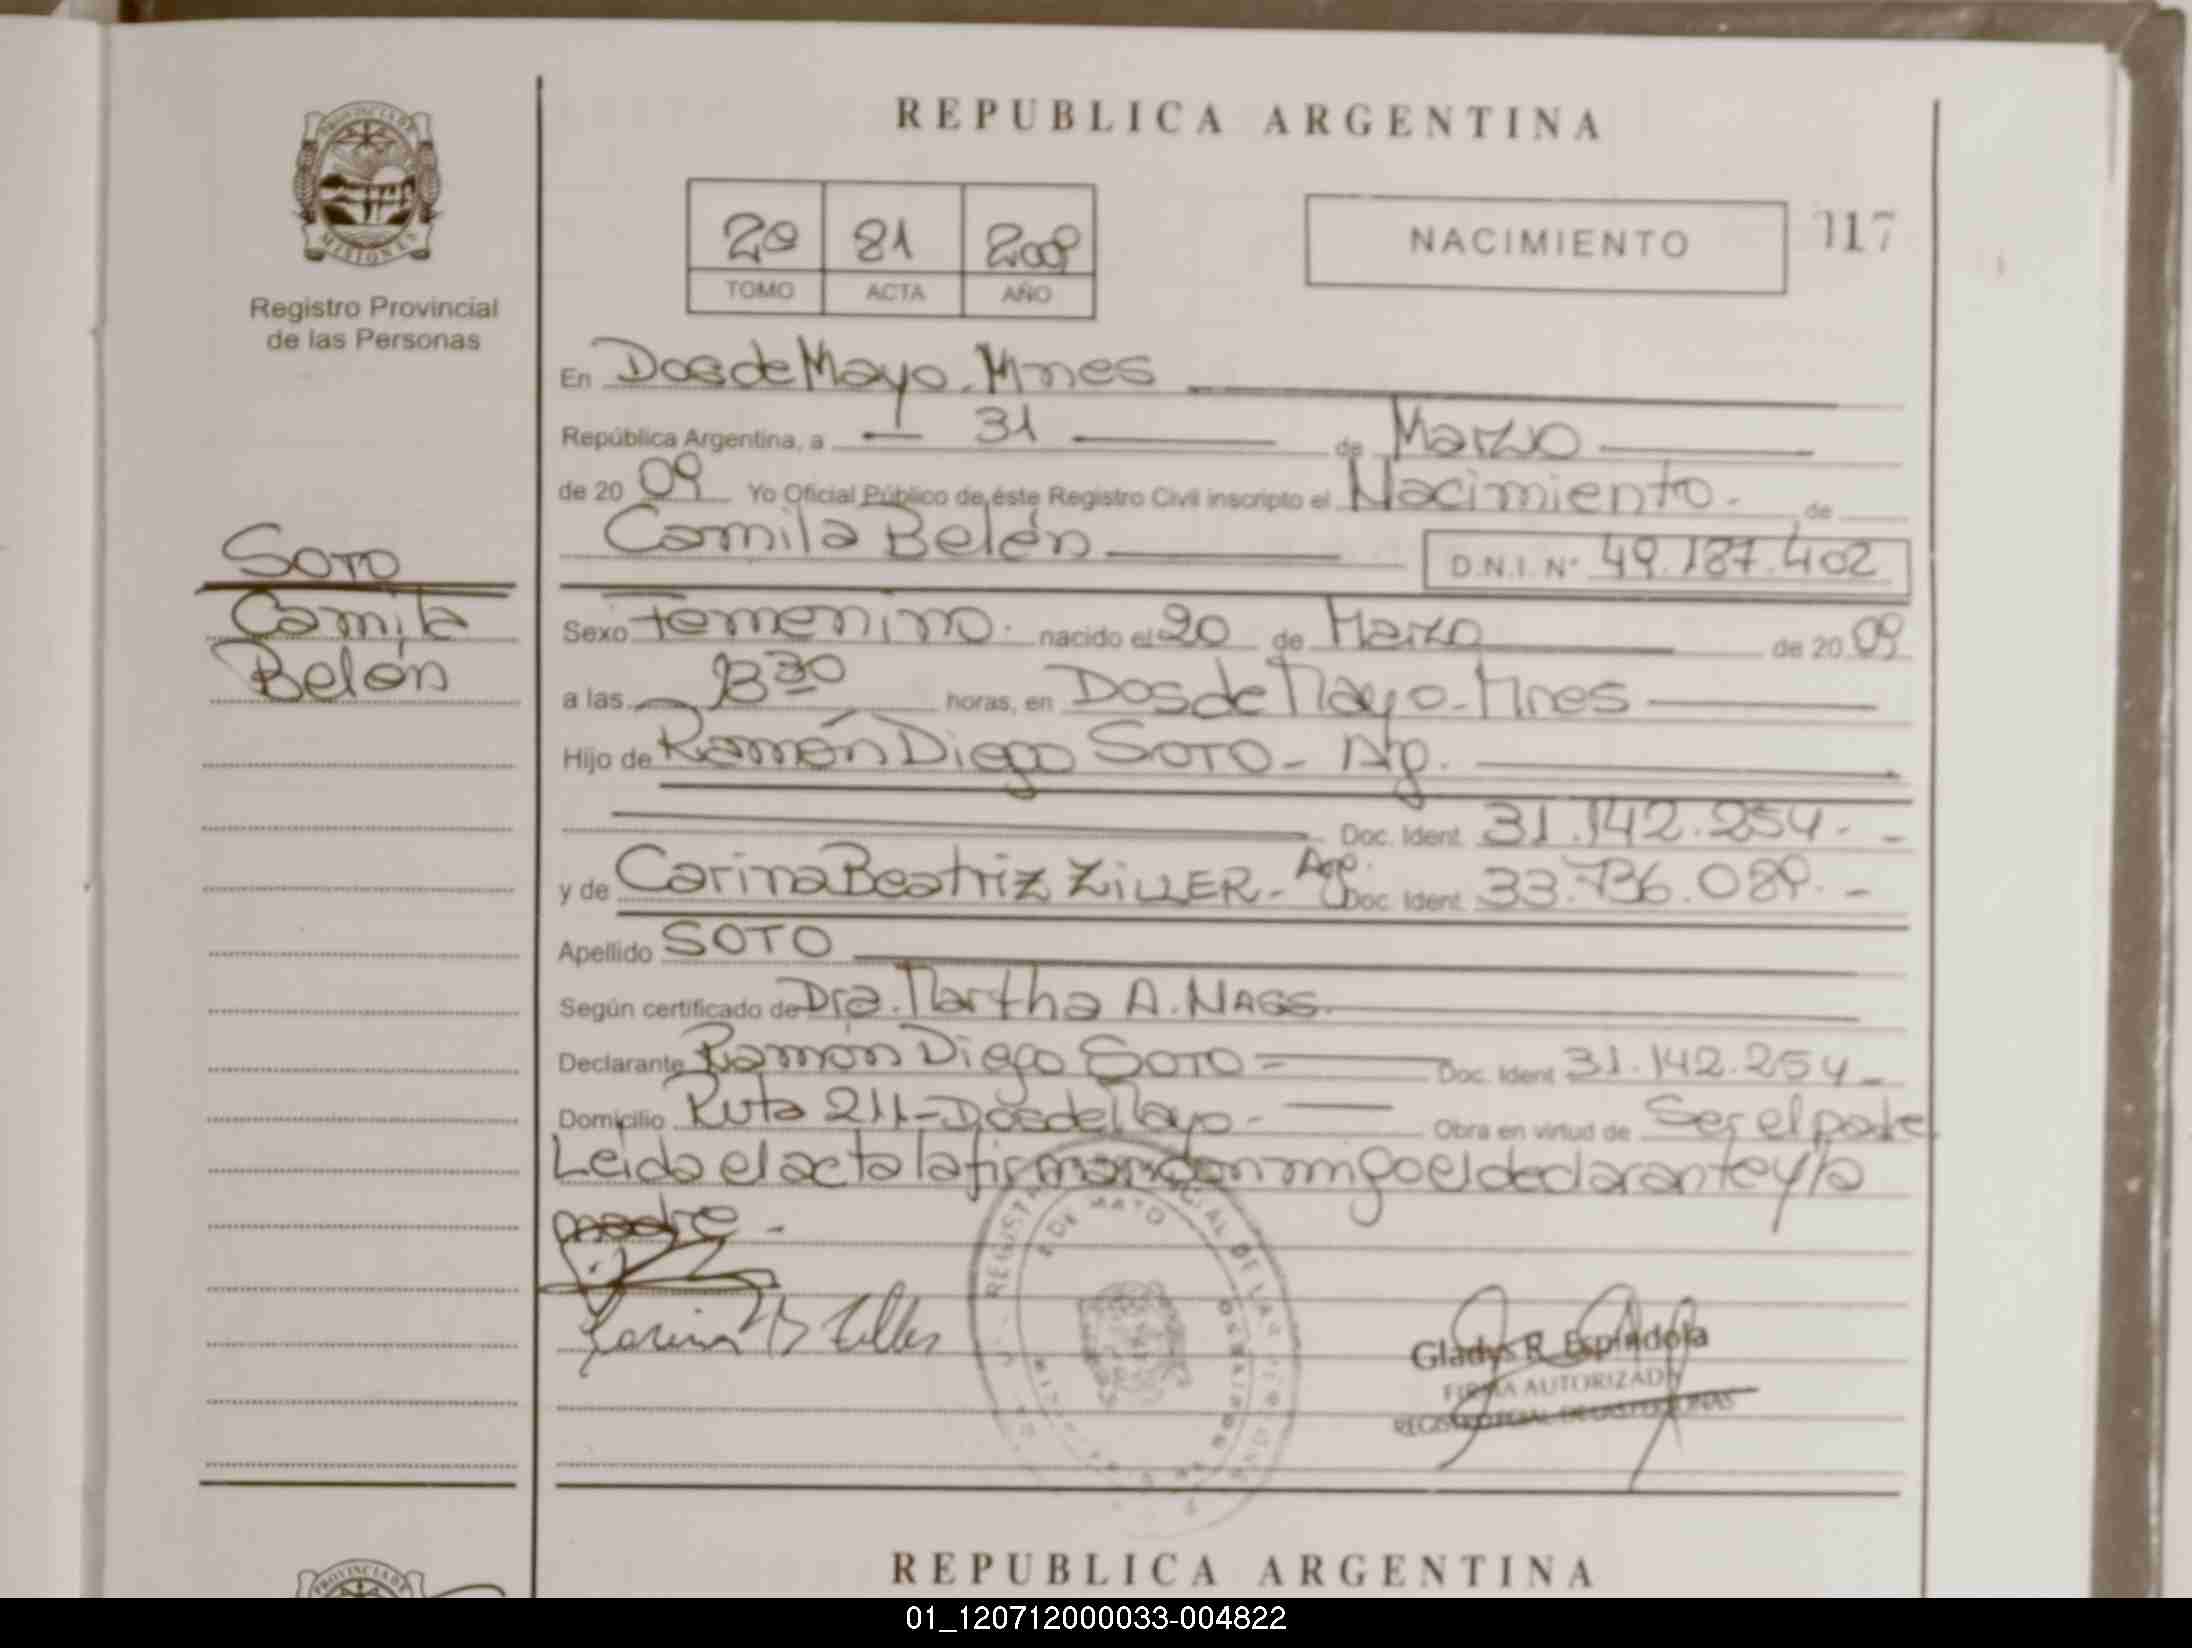 REPUBLICA ARGENTINA
PROVINCIA DE
MISIONES
Registro Provincial
de las Personas
81 2009
TOMO ACTA AÑO
NACIMIENTO
117
En Dos de Mayo. Mnes
República Argentina, a 31 de Marzo
de 20 09 Yo Oficial Público de éste Registro Civil inscripto el Nacimiento. de
Camila Belén D.N.I. Nº 49.187.402
SOTO
Camila
Belén
Sexo Femenino. nacido el 20 de Marzo de 20 09
a las horas, en Dos de Mayo - Mnes
Hijo de Ramón Diego SOTO - Arg.
Doc. Ident. 31.142.254 -
y de Carina Beatriz ZILLER - Arg. Doc. Ident. 33.736.089 -
Apellido SOTO
Según certificado de Dra. Martha A. NAGS
Declarante Ramón Diego SOTO - Doc. Ident. 31.142.254 -
Domicilio Ruta 211 - Dos de Mayo - Obra en virtud de Ser el padre
Leida el acta la firman conmigo el declarante y la
madre -
2 DE MAYO
Carina B Ziller
Gladys R. Espindola
FIRMA AUTORIZADA
REGISTRO PCIAL. DE LAS PERSONAS
REPUBLICA ARGENTINA
PROVINCIA DE
01_120712000033-004822